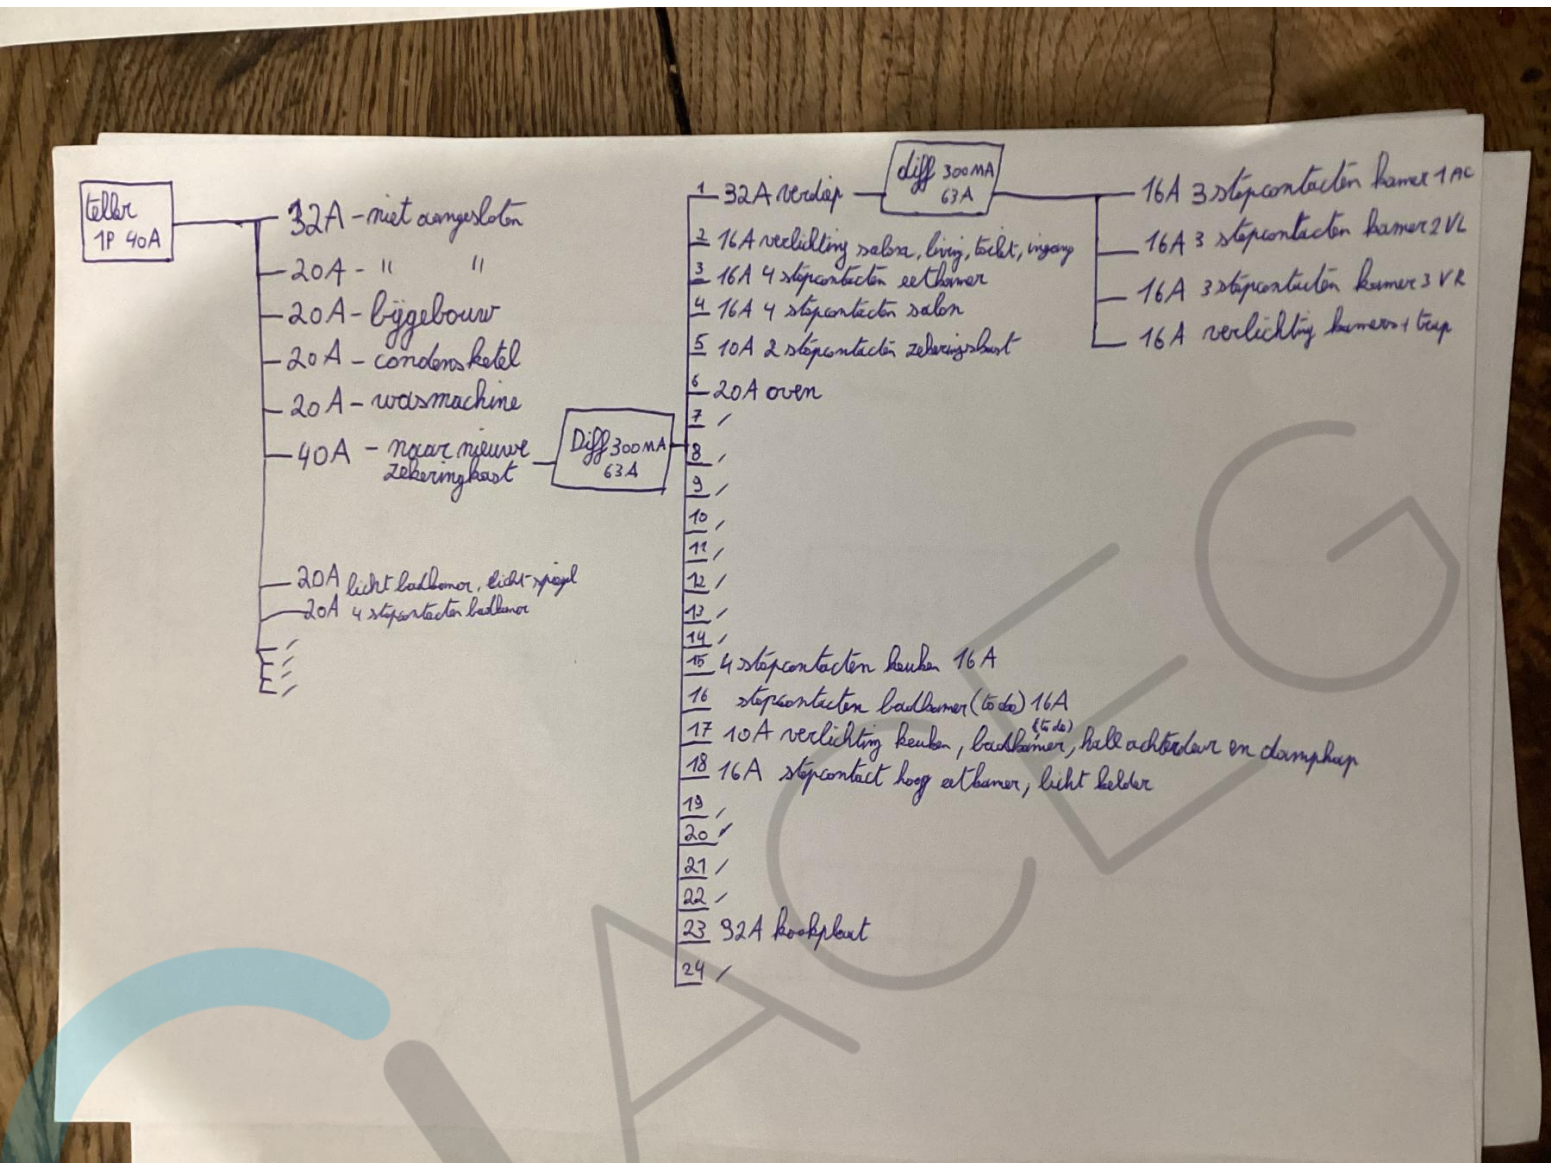 teller
1P 40A
32A - niet aangesloten
20A - " "
20A - bijgebouw
20A - condensketel
20A - wasmachine
40A - naar nieuwe
zekeringkast
20A licht badkamer, licht spiegel
20A 4 stopcontacten badkamer
Diff 300MA
63A
1 32A verdiep
2 16A verlichting salon, living, toilet, ingang
3 16A 4 stopcontacten eetkamer
4 16A 4 stopcontacten salon
5 10A 2 stopcontacten zekeringskast
6 20A oven
7 /
8 /
9 /
10 /
11 /
12 /
13 /
14 /
15 4 stopcontacten keuken 16A
16 stopcontacten badkamer (to do) 16A
17 10A verlichting keuken, badkamer (to do), hall achterdeur en dampkap
18 16A stopcontact hoog eetkamer, licht kelder
19 /
20 /
21 /
22 /
23 32A kookplaat
24 /
diff 300MA
63A
16A 3 stopcontacten kamer 1 AC
16A 3 stopcontacten kamer 2 VL
16A 3 stopcontacten kamer 3 VR
16A verlichting kamers + trap
ACEG